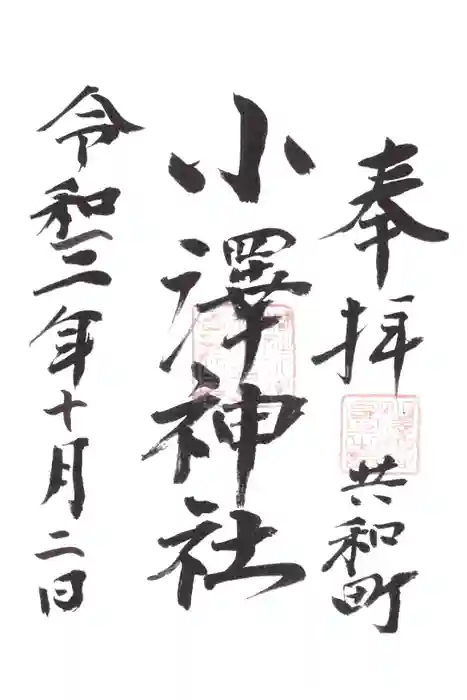 奉拝
共和町
小澤神社
令和三年十月二日